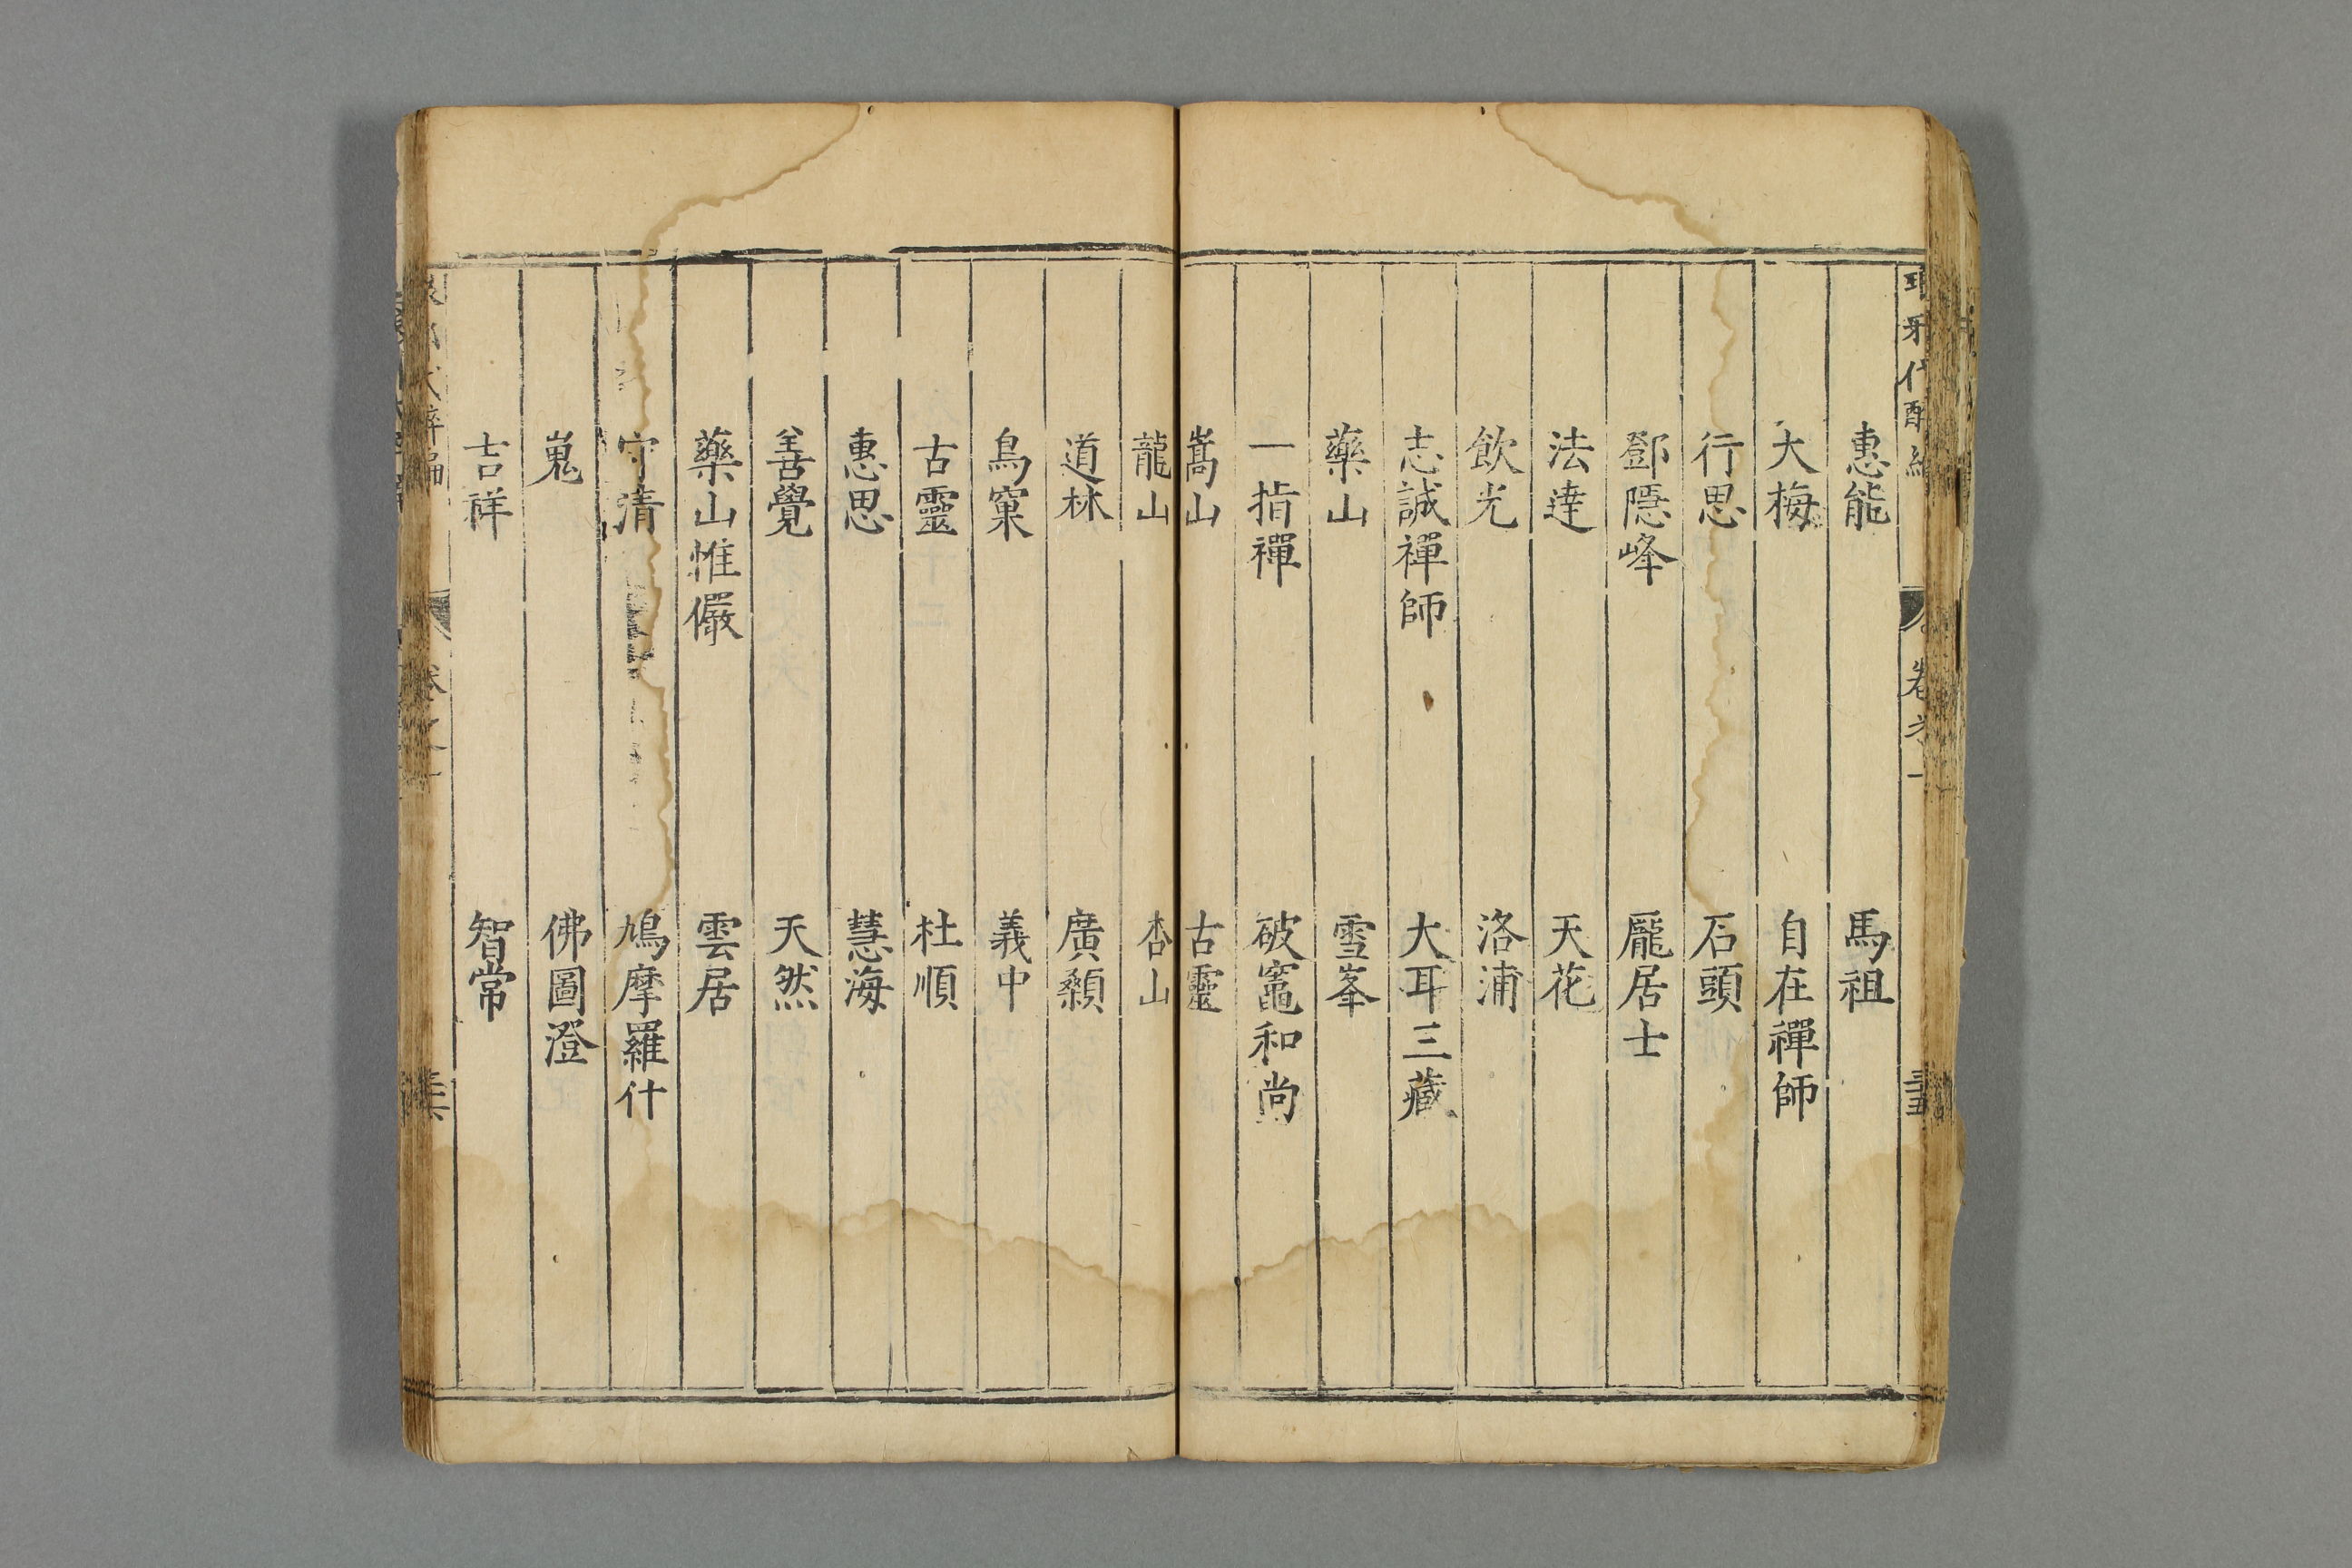 惠能 馬祖
大梅 自在禪師
行思 石頭
鄧隱峰 龎居士
法達 天花
飲光 洛浦
志誠禪師 大耳三藏
藥山 雪峯
一指禪 破竈和尚
嵩山 古靈
龍山 杏山
道林 廣顙
鳥窠 義中
古靈 杜順
惠思 慧海
善覺 天然
藥山惟儼 雲居
守清 鳩摩羅什
嵬 佛圖澄
吉祥 智常